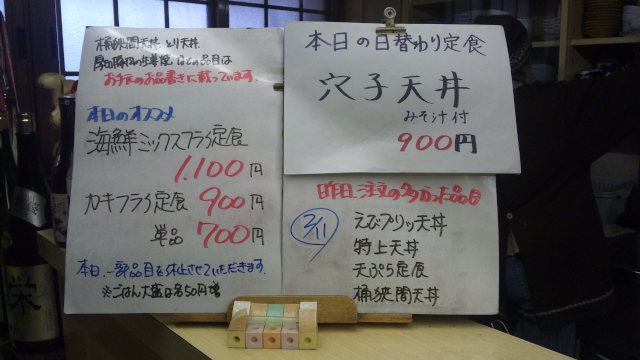 桶狭間天丼、とり天丼
などの品目は
お手元のお品書きに載っています。
本日のオススメ
海鮮ミックスフライ定食
1,100円
カキフライ定食 900円
単品 700円
本日、一部品目を休止させていただきます。
※ごはん大盛は各50円増
本日の日替わり定食
穴子天丼
みそ汁付
900円
昨日、注文の多かった品目
2/11
えびプリッツ天丼
特上天丼
天ぷら定食
桶狭間天丼
栄